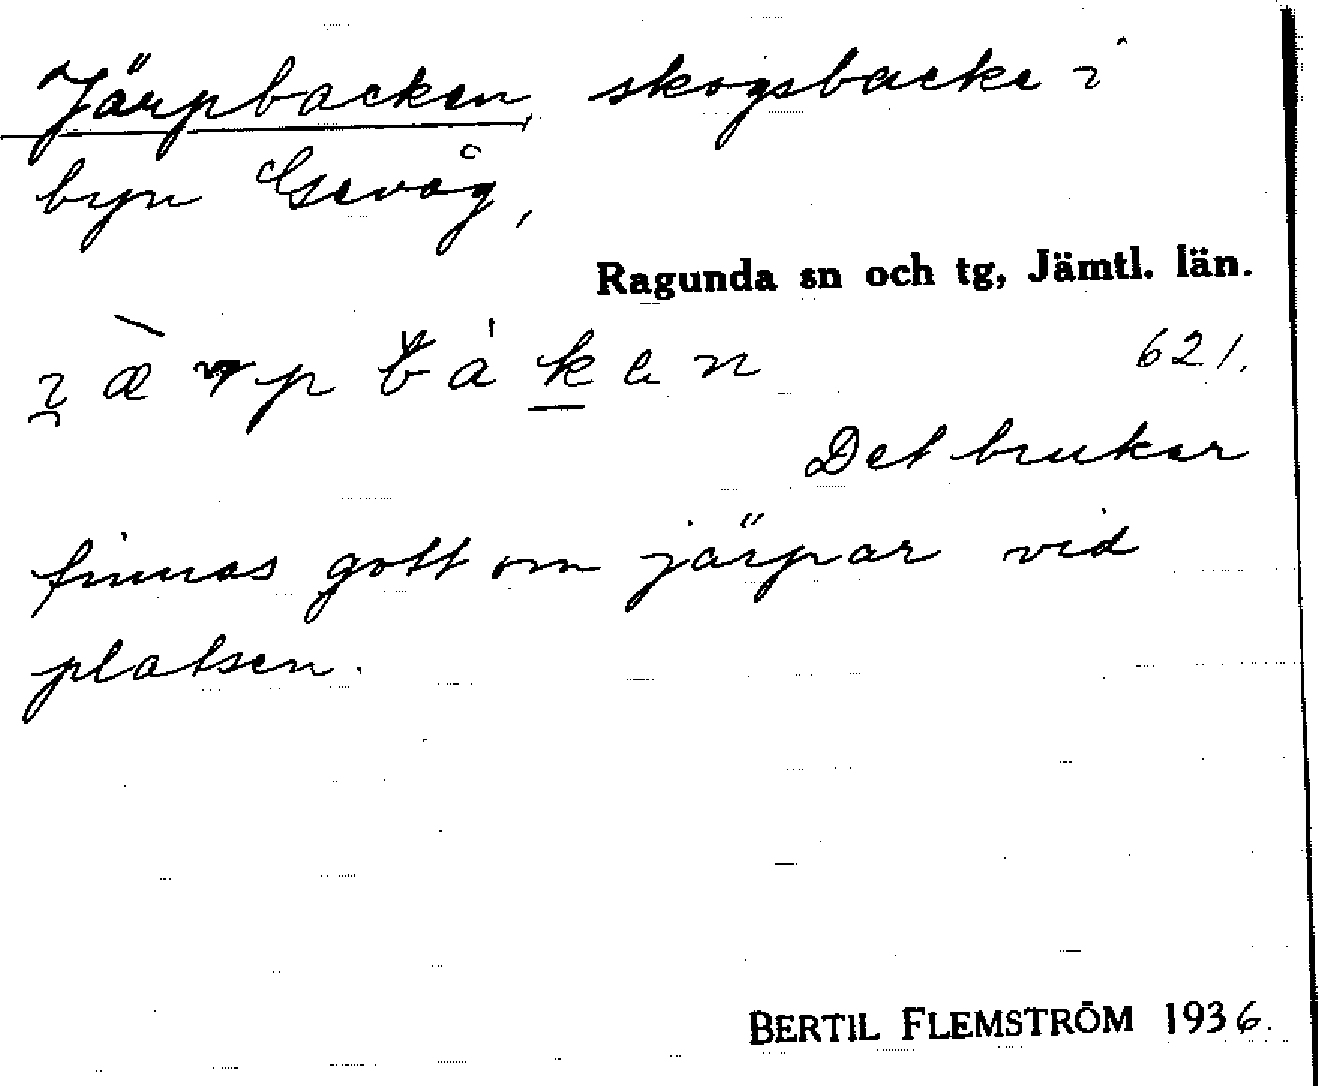 Järpbacken, skogsbacke i
byn Gevåg,
Ragunda sn och tg, Jämtl. län.
621.
Det brukar
finnas gott om järpar vid
platsen.
BERTIL FLEMSTRÖM 1936.